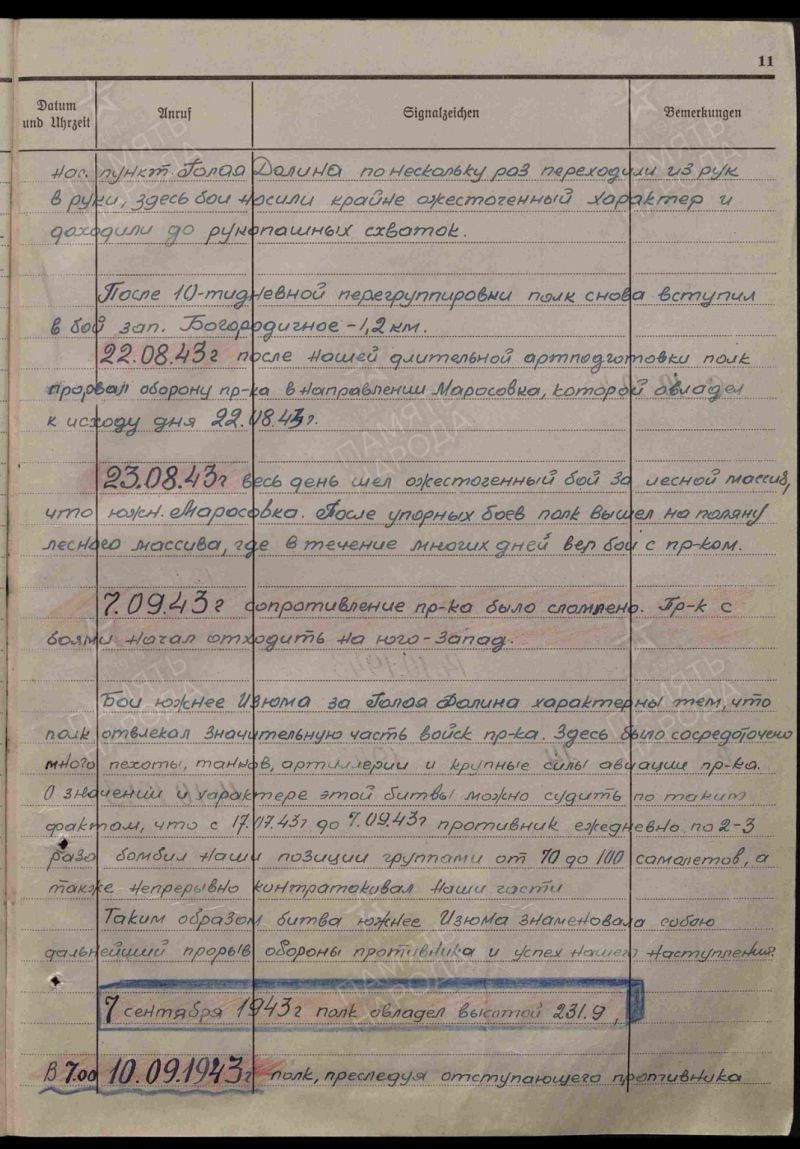 11
Datum und Uhrzeit
Anruf
Signalzeichen
Bemerkungen
нас. пункт. Голая Долина по нескольку раз переходили из рук
в руки, здесь бои носили крайне ожесточенный характер и
доходили до рукопашных схваток.
После 10-тидневной перегруппировки полк снова вступил
в бой зап. Богородичное – 1,2 км.
22.08.43г после нашей длительной артподготовки полк
прорвал оборону пр-ка в направлении Маросовка, которой овладел
к исходу дня 22.08.43г.
23.08.43г весь день шел ожесточенный бой за лесной массив,
что южн. Маросовка. После упорных боев полк вышел на поляну
лесного массива, где в течение многих дней вел бой с пр-ком.
7.09.43г сопротивление пр-ка было сломлено. Пр-к с
боями начал отходить на юго-запад.
Бои южнее Изюма за Голая Долина характерны тем, что
полк отвлекал значительную часть войск пр-ка. Здесь было сосредоточено
много пехоты, танков, артиллерии и крупные силы авиации пр-ка.
О значении и характере этой битвы можно судить по таким
фактам, что с 17.07.43г до 7.09.43г противник ежедневно по 2-3
раза бомбил наши позиции группами от 70 до 100 самолетов, а
также непрерывно контратаковал наши части
Таким образом битва южнее Изюма знаменовала собою
дальнейший прорыв обороны противника и успех нашего наступления.
7 сентября 1943г полк овладел высотой 231.9,
В 7.00 10.09.1943г полк, преследуя отступающего противника
ПАМЯТЬ НАРОДА